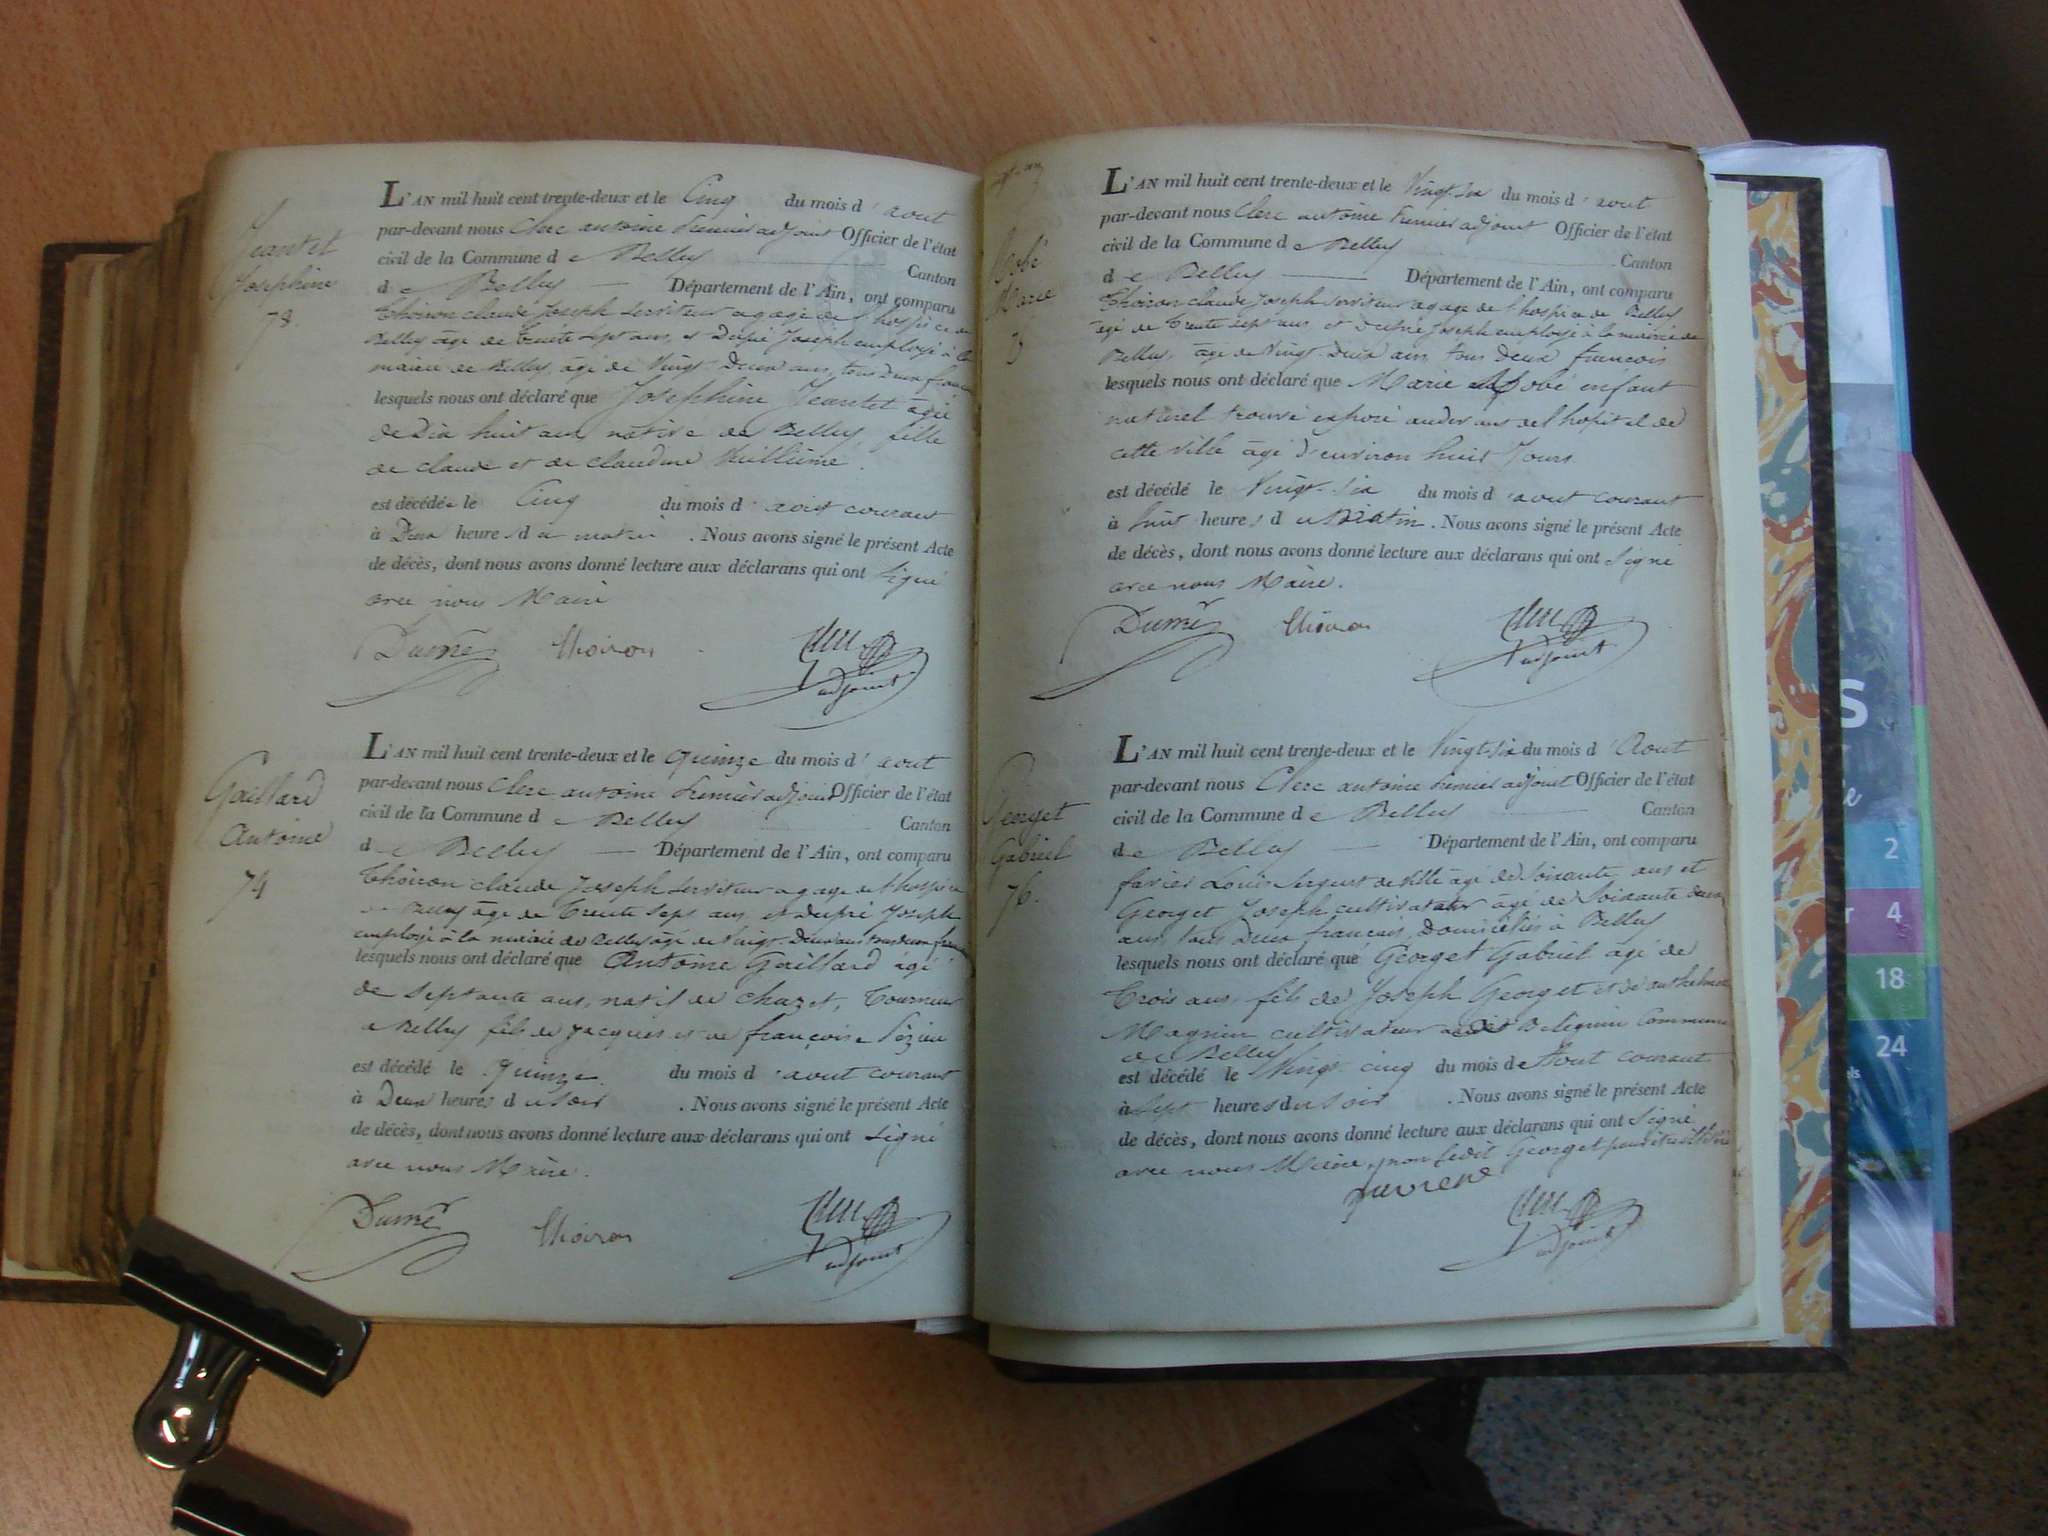 Jeantet
Josephine
73.
L'AN mil huit cent trente-deux et le Cinq du mois d'aout
par-devant nous Clerc antoine Premier adjoint Officier de l'état
civil de la Commune de Belley Canton
de Belley Département de l'Ain, ont comparu
Thoiron claude Joseph Serviteur a gage de l'hospice de
Belley âgé de Trente Sept ans, et Dupré Joseph employé à la
mairie de Belley âgé de Vingt Deux ans, tous Deux français
lesquels nous ont déclaré que Josephine Jeantet âgée
de Dix huit ans native de Belley, fille
de claude et de claudine Vuillième.
est décédée le Cinq du mois d'aout courant
à Deux heures du matin. Nous avons signé le présent Acte
de décès, dont nous avons donné lecture aux déclarans qui ont signé
avec nous Maire
Dupré Thoiron Clerc
adjoint
Gaillard
Antoine
74
L'AN mil huit cent trente-deux et le quinze du mois d'aout
par-devant nous Clerc antoine Premier adjoint Officier de l'état
civil de la Commune de Belley Canton
de Belley Département de l'Ain, ont comparu
Thoiron claude Joseph Serviteur a gage de l'hospice
de Belley âgé de Trente Sept ans, et Dupré Joseph
employé à la mairie de Belley âgé de Vingt Deux ans tous deux français
lesquels nous ont déclaré que Antoine Gaillard âgé
de Septante ans, natif de Chazet, Tourneur
a Belley fils de Jacques et de françoise
est décédé le quinze du mois d'aout courant
à Deux heures du soir. Nous avons signé le présent Acte
de décès, dont nous avons donné lecture aux déclarans qui ont signé
avec nous Maire.
Dupré Thoiron Clerc
adjoint
Marie
L'AN mil huit cent trente-deux et le Vingt-six du mois d'aout
par-devant nous Clerc antoine Premier adjoint Officier de l'état
civil de la Commune de Belley Canton
de Belley Département de l'Ain, ont comparu
Thoiron claude Joseph Serviteur a gage de l'hospice de Belley
âgé de Trente Sept ans et Dupré Joseph employé à la mairie de
Belley, âgé de Vingt Deux ans tous Deux francois
lesquels nous ont déclaré que Marie enfant
naturel trouvé exposé au devans de l'hopital de
cette ville âgé d'environ huit Jours
est décédé le Vingt-Six du mois d'aout courant
à huit heures du Matin. Nous avons signé le présent Acte
de décès, dont nous avons donné lecture aux déclarans qui ont signé
avec nous Maire.
Dupré Thoiron Clerc
adjoint
Georget
Gabriel
76.
L'AN mil huit cent trente-deux et le Vingt-six du mois d'Aout
par-devant nous Clerc antoine Premier adjoint Officier de l'état
civil de la Commune de Belley Canton
de Belley Département de l'Ain, ont comparu
Louis Sergent de Ville âgé de Soixante ans et
Georget Joseph cultivateur âgé de Soixante deux
ans tous Deux francais, Domiciliés à Belley
lesquels nous ont déclaré que Georget Gabriel âgé de
Trois ans, fils de Joseph Georget et de anthelmette
Magnin cultivateur Commune
de Belley
est décédé le Vingt cinq du mois de Aout courant
à Sept heures du soir. Nous avons signé le présent Acte
de décès, dont nous avons donné lecture aux déclarans qui ont signé
avec nous Maire, non ledit Georget pour être illitéré
Clerc
adjoint
s
2
4
18
24